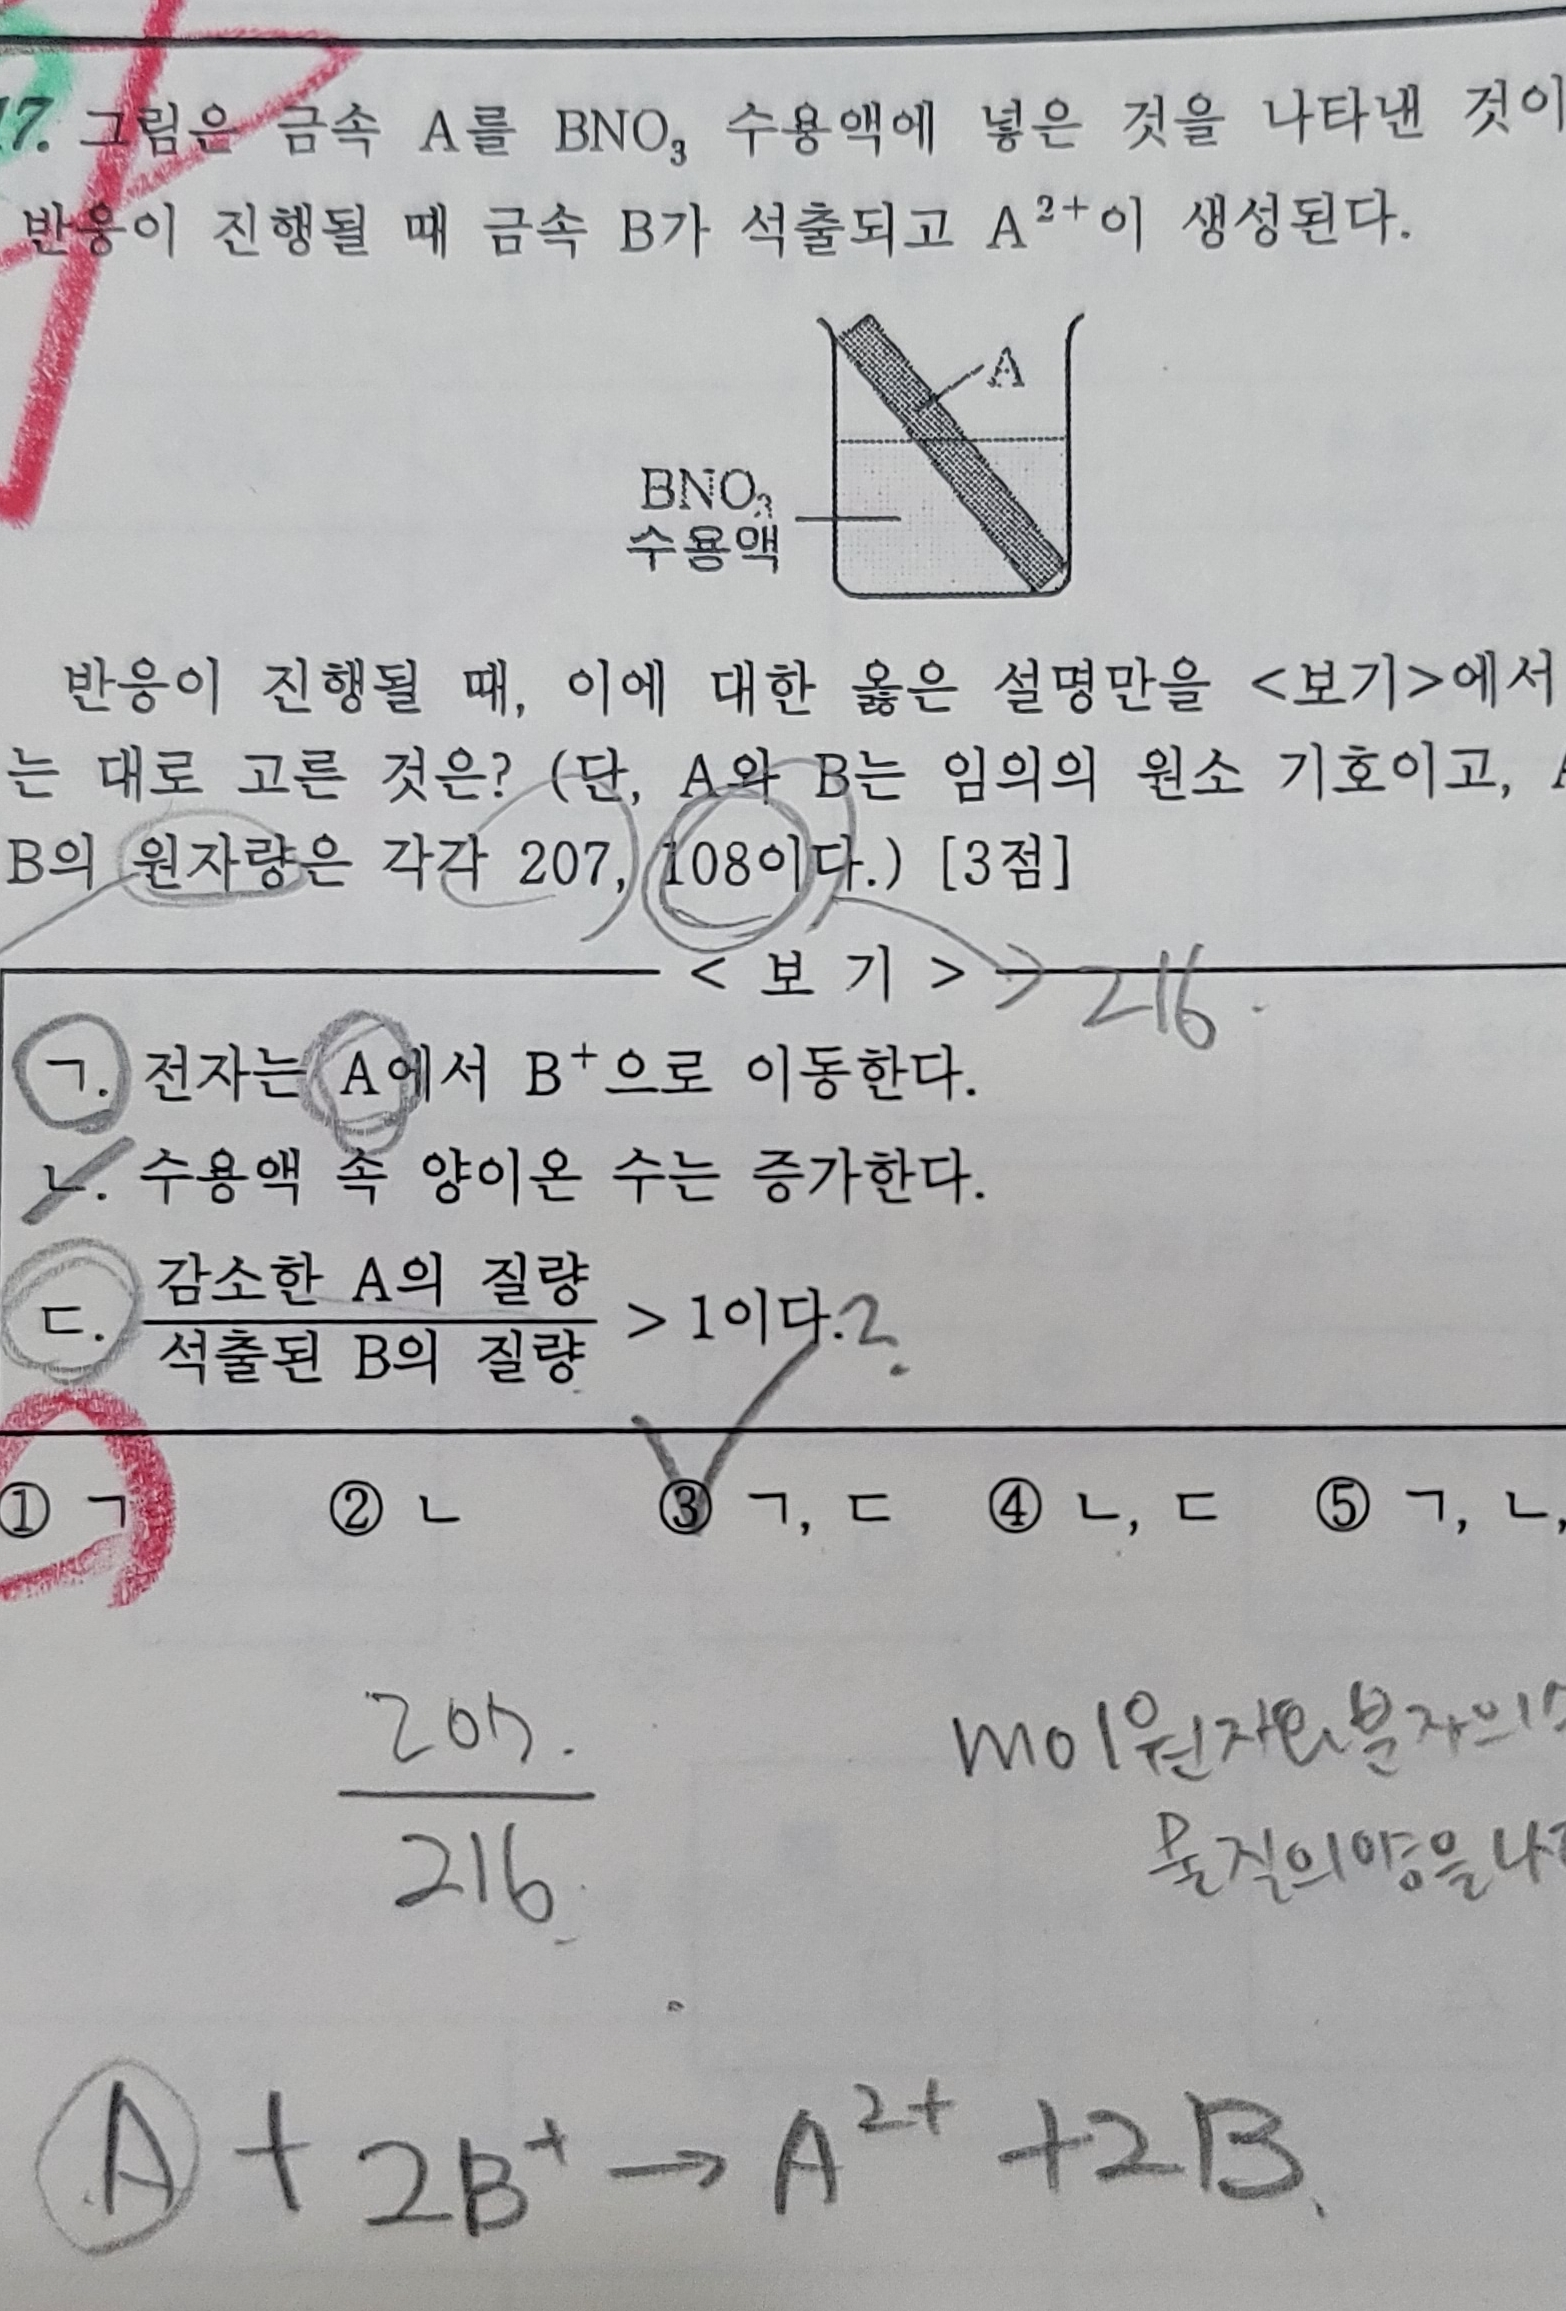 17. 그림은 금속 A를 BNO₃ 수용액에 넣은 것을 나타낸 것이
반응이 진행될 때 금속 B가 석출되고 A²⁺이 생성된다.
A
BNO₃
수용액
반응이 진행될 때, 이에 대한 옳은 설명만을 <보기>에서
는 대로 고른 것은? (단, A와 B는 임의의 원소 기호이고,
B의 원자량은 각각 207, 108이다.) [3점]
<보기>
216.
ㄱ. 전자는 A에서 B⁺으로 이동한다.
ㄴ. 수용액 속 양이온 수는 증가한다.
ㄷ. 감소한 A의 질량
석출된 B의 질량 > 1이다.?
① ㄱ ② ㄴ ③ ㄱ, ㄷ ④ ㄴ, ㄷ ⑤ ㄱ, ㄴ,
207.
216.
mol원자와분자의
물질의양을나
A + 2B⁺ → A²⁺ + 2B.